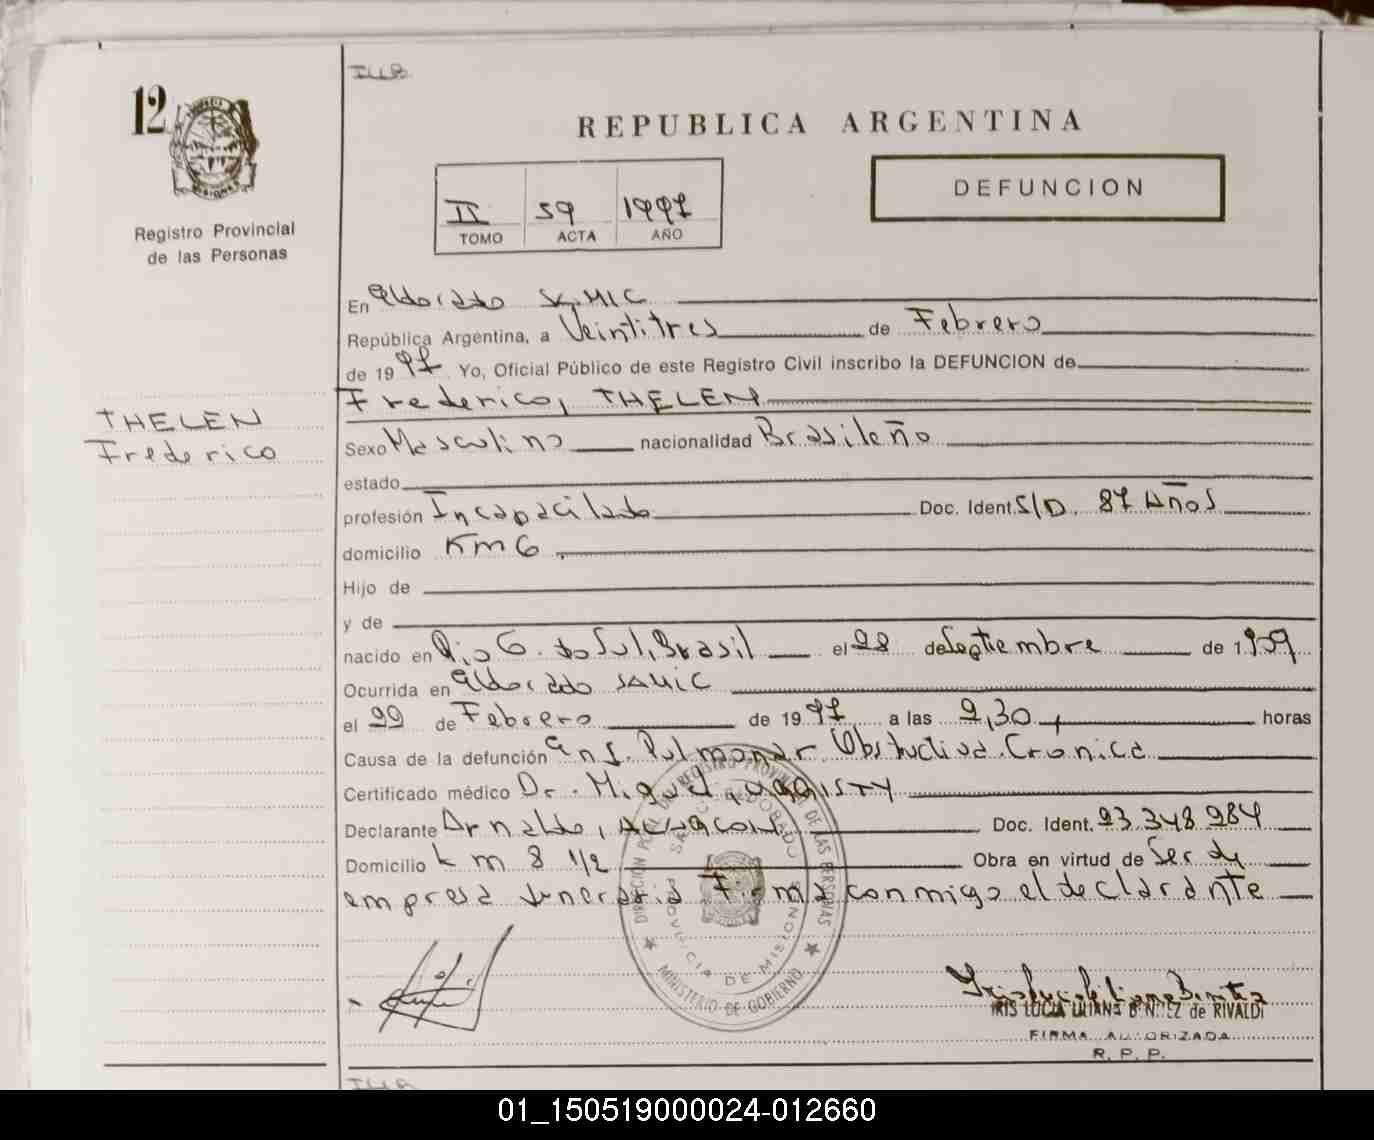 12
Registro Provincial
de las Personas
REPUBLICA ARGENTINA
DEFUNCION
II 59 1997
TOMO ACTA AÑO
En Eldorado
República Argentina, a Veintitres de Febrero
de 1997 Yo, Oficial Público de este Registro Civil inscribo la DEFUNCION de
Frederico, THELEN
THELEN
Frederico
Sexo Masculino nacionalidad Brasileño
estado
profesión Incapacitado Doc. Ident. S/D. 87 Años
domicilio Km 6
Hijo de
y de
nacido en Rio G. do Sul, Brasil el 28 de Septiembre de 1.909
Ocurrida en Eldorado
el 22 de Febrero de 1997 a las 2,30 horas
Causa de la defunción Ins. Pulmonar Obstructiva Cronica
Certificado médico Dr. Miguel
Declarante Arnaldo, Doc. Ident. 23.348.284
Domicilio Km 8 1/2 Obra en virtud de Ser de
empresa funeraria Firma conmigo el declarante
DIRECCION PCIAL DE REGISTRO PROVINCIAL DE LAS PERSONAS
PROVINCIA DE MISIONES
MINISTERIO DE GOBIERNO
IRIS LUCIA LILIANA BENITEZ de RIVALDI
FIRMA AUTORIZADA
R. P. P.
01_150519000024-012660